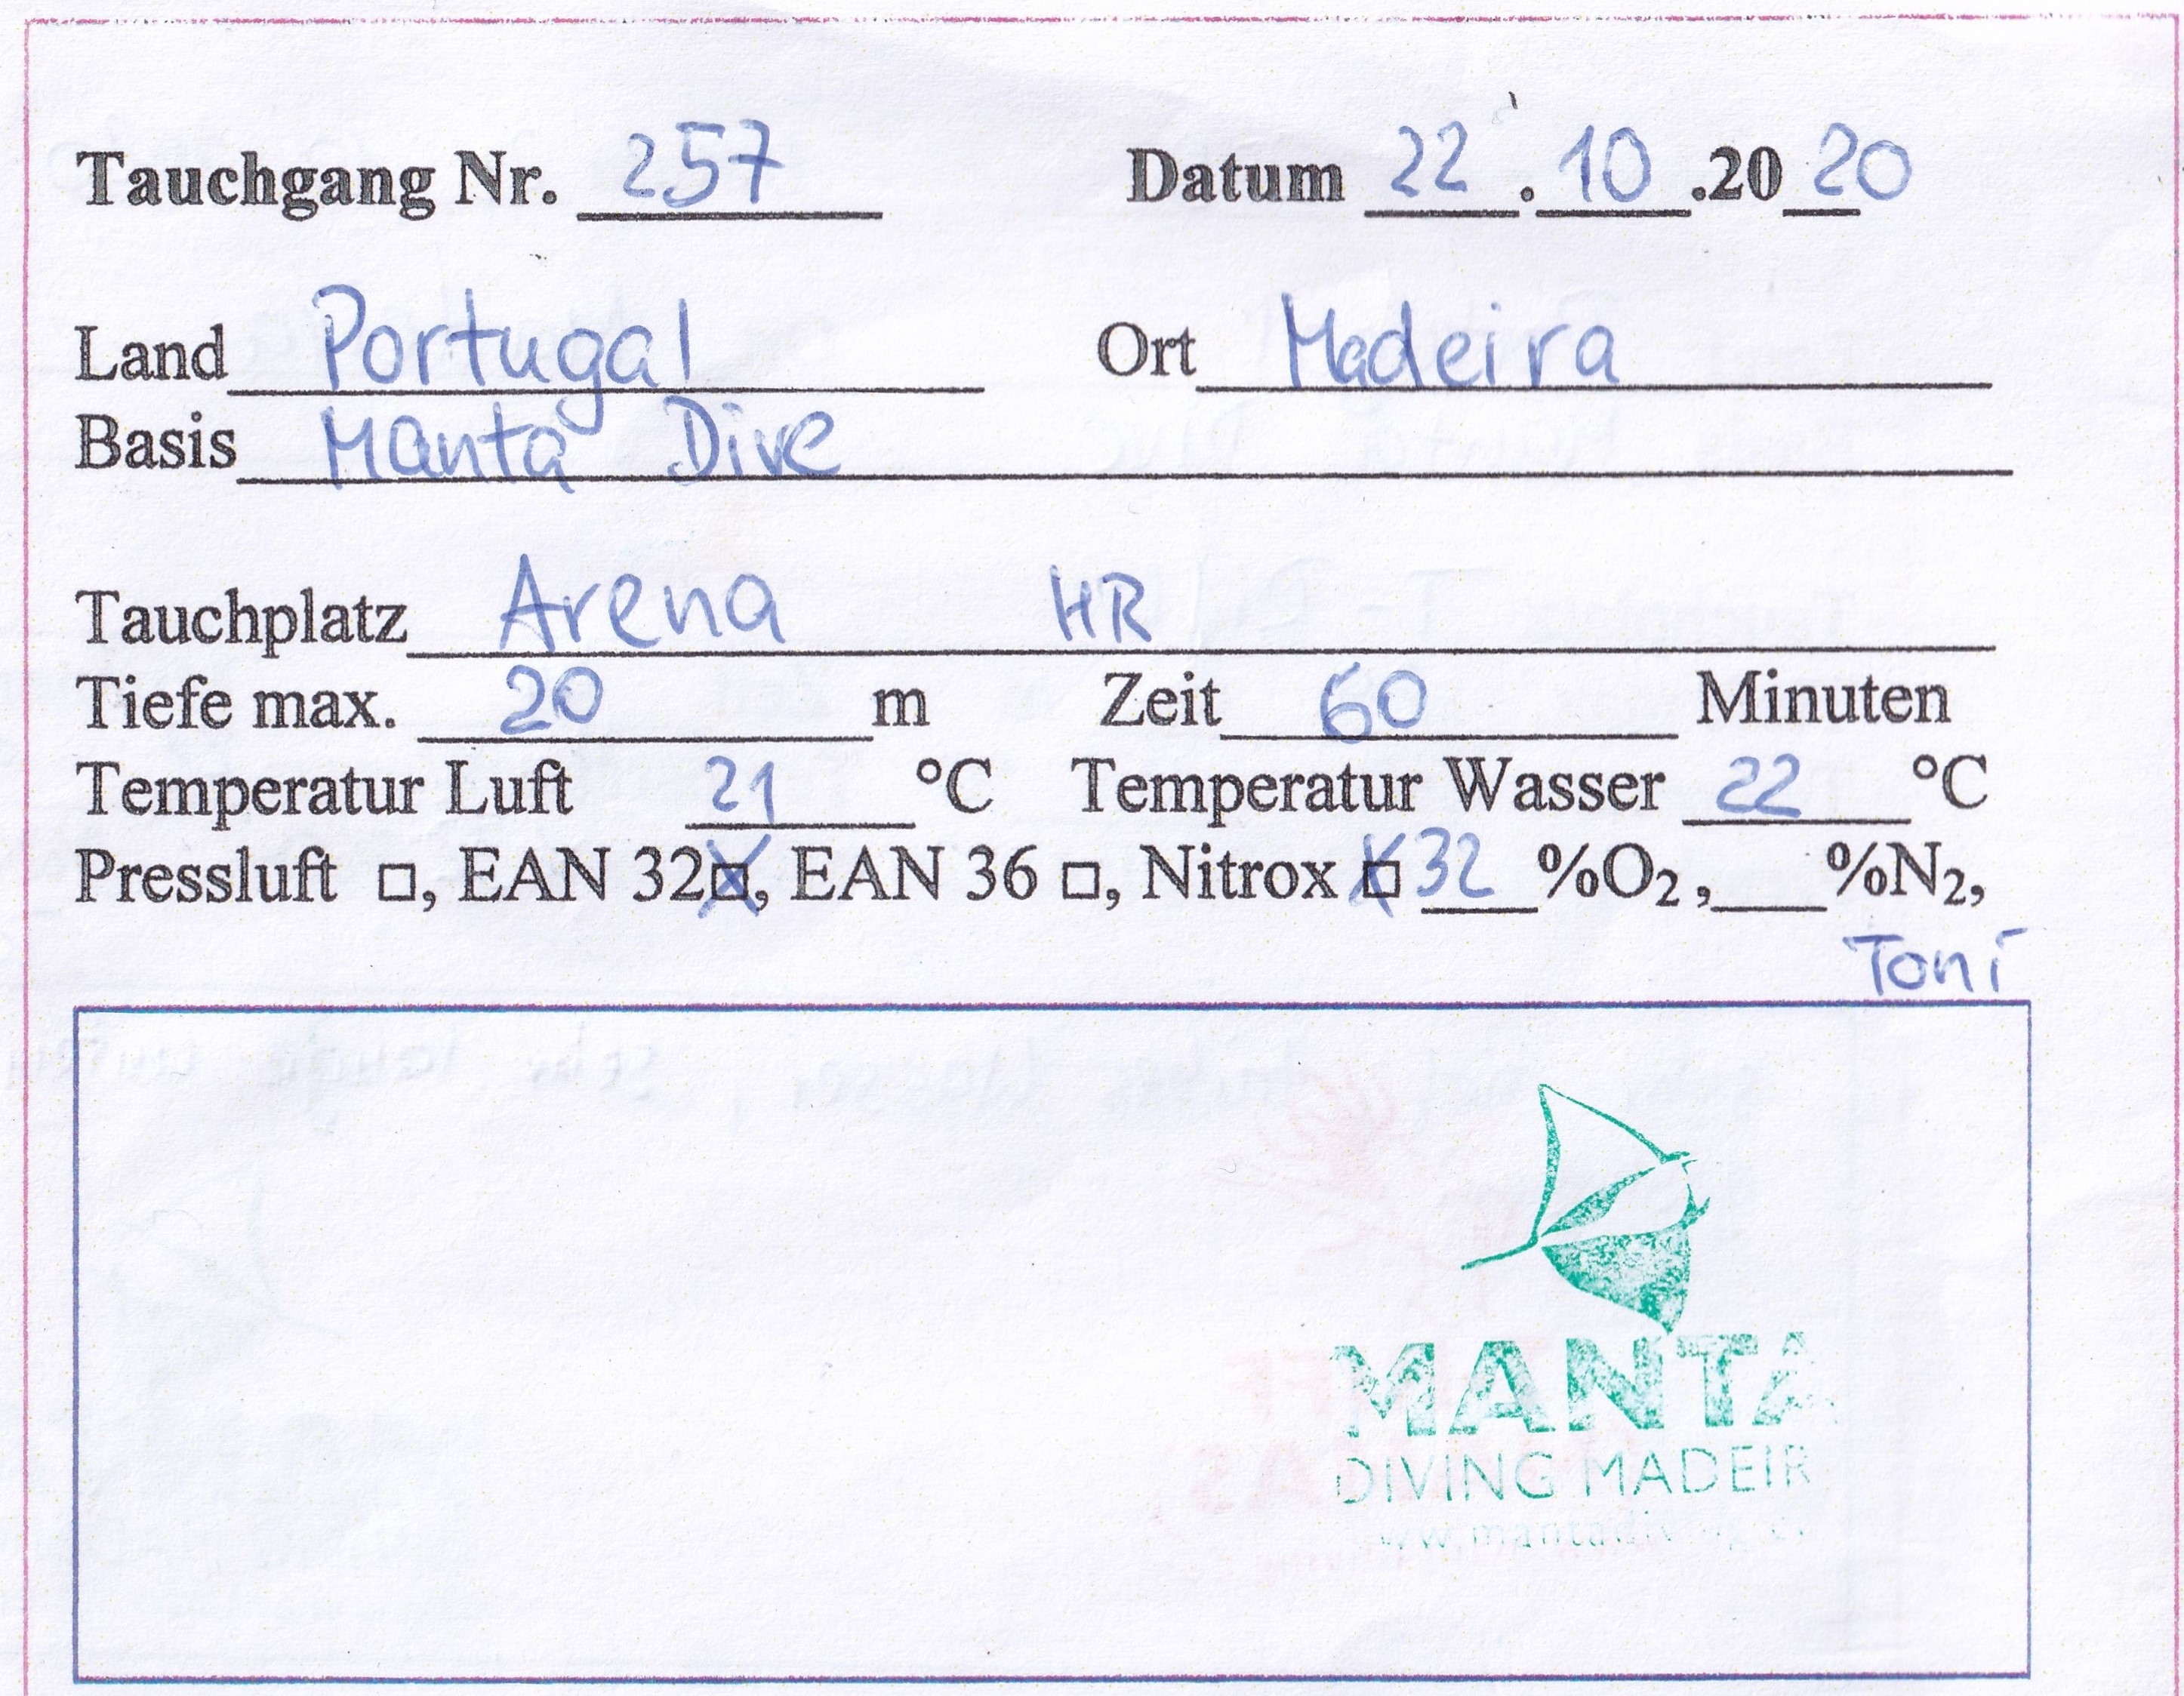 Tauchgang Nr. 257 Datum 22.10.2020
Land Portugal Ort Madeira
Basis Manta Dive
Tauchplatz Arena HR
Tiefe max. 20 m Zeit 60 Minuten
Temperatur Luft 21 °C Temperatur Wasser 22 °C
Pressluft □, EAN 32☒, EAN 36 □, Nitrox ☒ 32 %O₂, ___%N₂,
Toni
MANTA
DIVING MADEIR